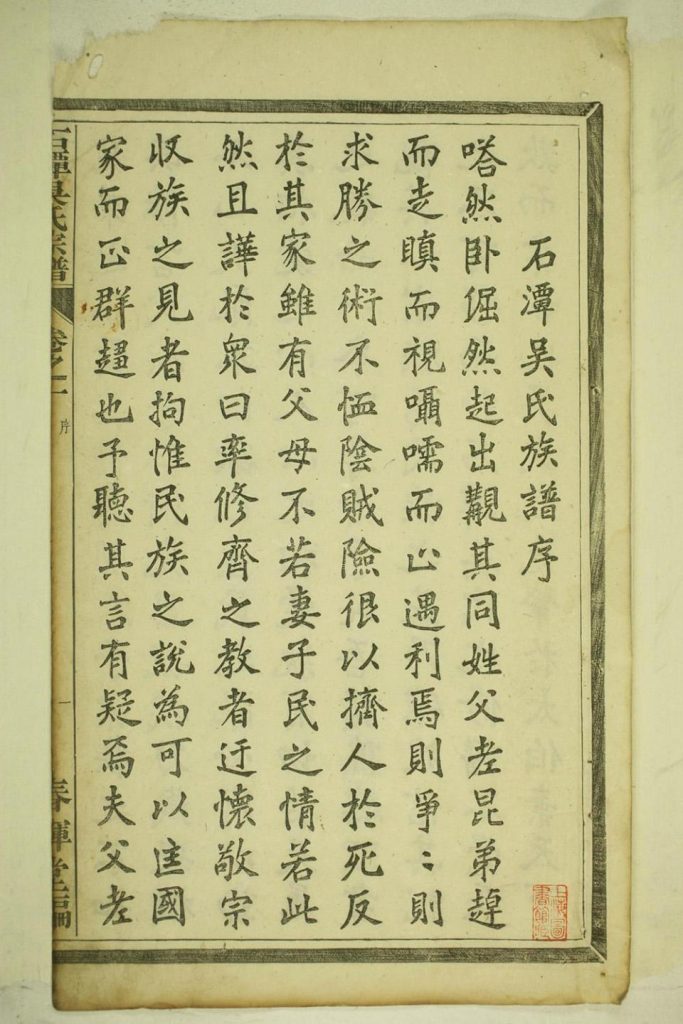 石潭吳氏族譜序
嗒然卧倔然起出覯其同姓父老昆弟趠
而走瞋而視囁嚅而止遇利焉則爭〻則
求勝之術不恤陰賊險很以擠人於死反
於其家雖有父母不若妻子民之情若此
然且譁於衆曰率修齊之教者迂懷敬宗
收族之見者拘惟民族之說為可以匡國
家而正群趨也予聽其言有疑焉夫父老
石潭吳氏宗譜
卷之一
序
一
春暉堂編
上海圖書館藏